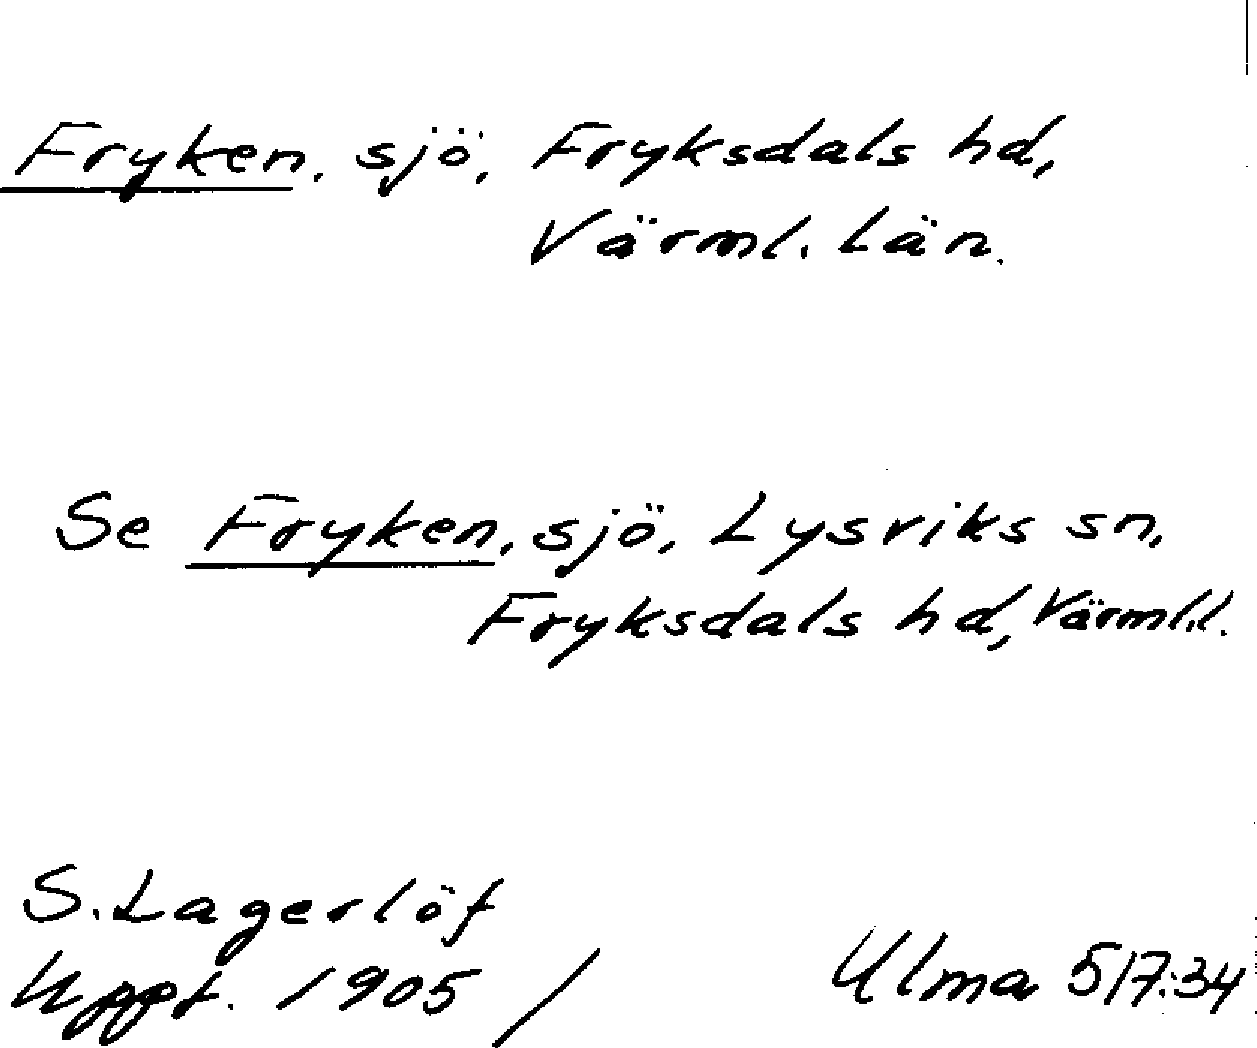 Fryken, sjö, Fryksdals hd,
Värml. län.
Se Fryken, sjö, Lysviks sn,
Fryksdals hd, Värml.l.
S. Lagerlöf
Uppt. 1905 / Ulma 517:34